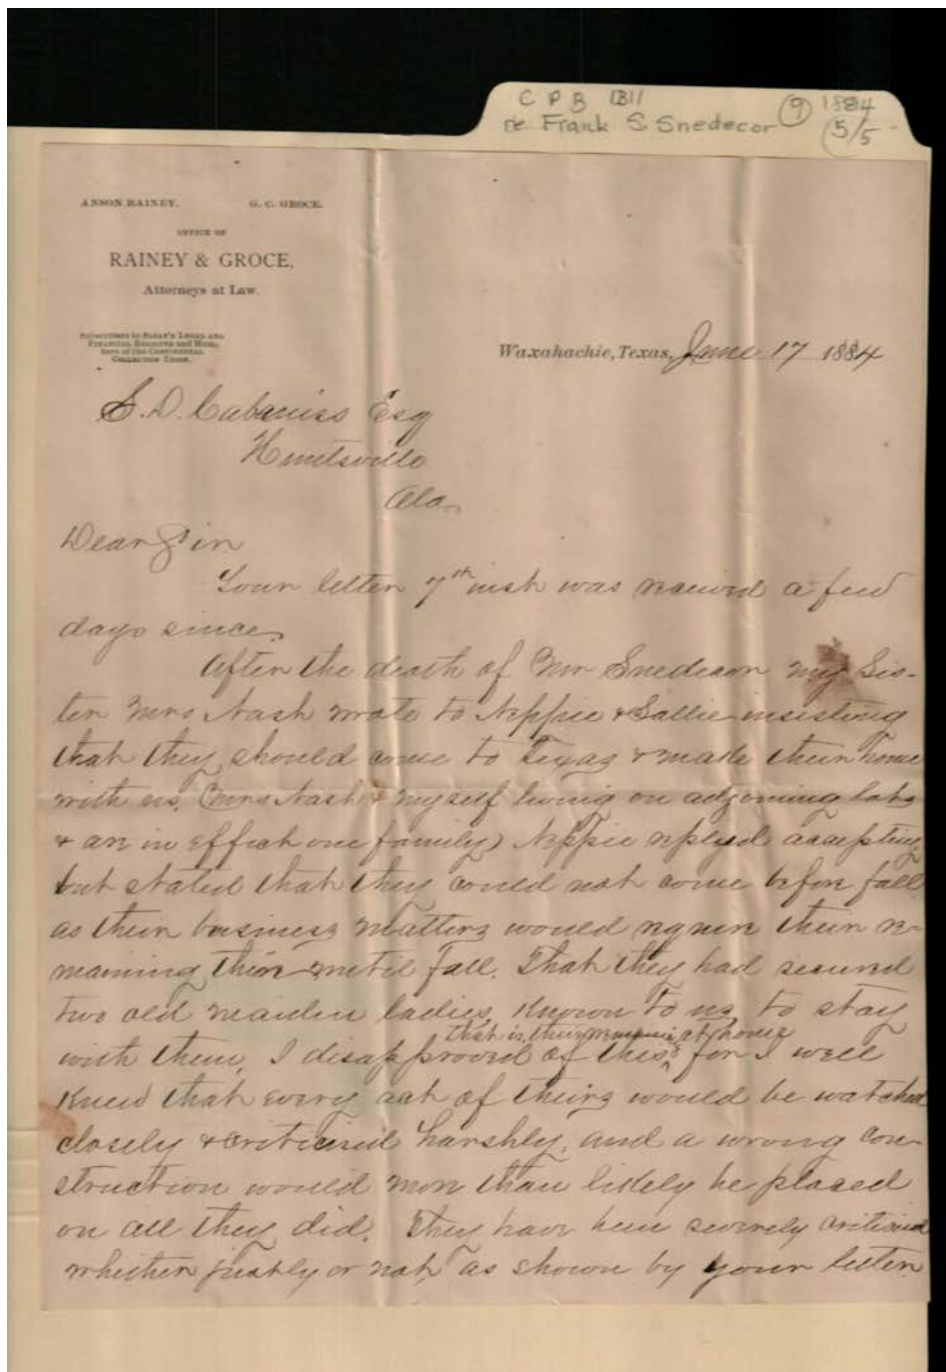 C P B 1811
re Frank S. Snedecor
9
1884
5/5
ANSON RAINEY. G. C. GROCE.
OFFICE OF
RAINEY & GROCE,
Attorneys at Law.
Subscribers to Sharp's Legal and
Financial Register and Mem-
bers of the Continental
Collection Union.
Waxahachie, Texas, June 17 1884
S. D. Cabaniss Esq
Huntsville
Ala.
Dear Sir
Your letter 7th inst was received a few
days since.
After the death of Mr Snedecor my Sis-
ter Mrs Nash wrote to Neppie & Sallie insisting
that they should come to Texas & made their home
with us. (Mrs Nash & myself living on adjoining lots
& are in effect one family) Neppie replyed accepting,
but stated that they could not come before fall
as their business matters would require their re-
maining there until fall. That they had secured
two old maiden ladies, known to us, to stay
with them, I disapproved of this, that is, their remaining at home for I well
knew that every act of theirs would be watched
closely & criticised harshly, and a wrong con-
struction would more than likely be placed
on all they did. They have been severely criticised
whether justly or not, as shown by your letter